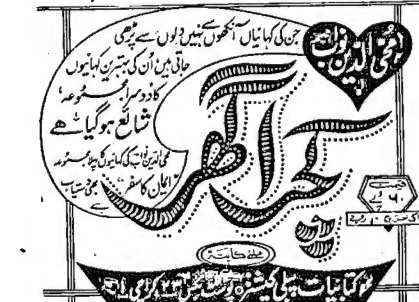 جن کی کہانیاں آنکھوں سے نہیں دِلوں سے پڑھی
جاتی ہیں اُن کی بہترین کہانیوں
کا دوسرا مجموعہ،
شائع ہو گیا ہے
محی الدین نواب کی کہانیوں کا پہلا مجموعہ
"ایمان کا سفر" بھی دستیاب
ہے
محی الدین نواب
کچرا گھر
قیمت
۶۰ روپے
ملنے کا پتہ
کتابیات پبلی کیشنز پوسٹ بکس ۲۳ کراچی ۱